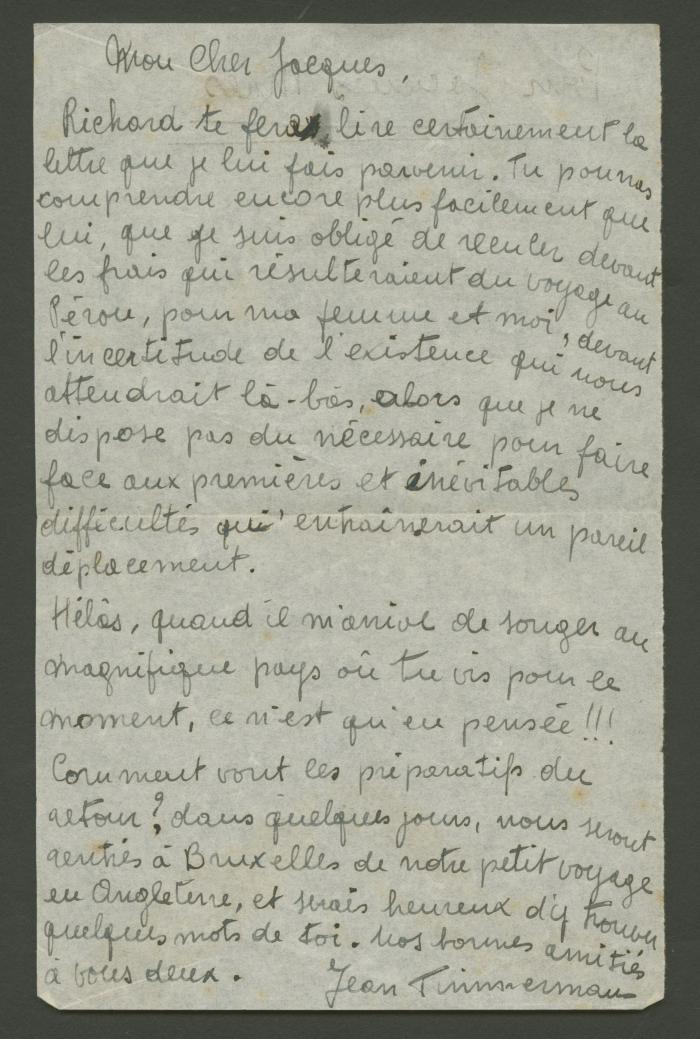 Mon Cher Jacques,
Richard te fera lire certainement la
lettre que je lui fais parvenir. Tu pourras
comprendre encore plus facilement que
lui, que je suis obligé de reculer devant
les frais qui résulteraient du voyage au
Pérou, pour ma femme et moi, devant
l'incertitude de l'existence qui nous
attendrait là-bas, alors que je ne
dispose pas du nécessaire pour faire
face aux premières et inévitables
difficultés qu'entraînerait un pareil
déplacement.
Hélàs, quand il m'arrive de songer au
magnifique pays où tu vis pour le
moment, ce n'est qu'en pensée!!!
Comment vont les préparatifs du
retour? dans quelques jours, nous serons
rentrés à Bruxelles de notre petit voyage
en Angleterre, et serais heureux d'y trouver
quelques mots de toi. Nos bonnes amitiés
à vous deux.
Jean Timmermans